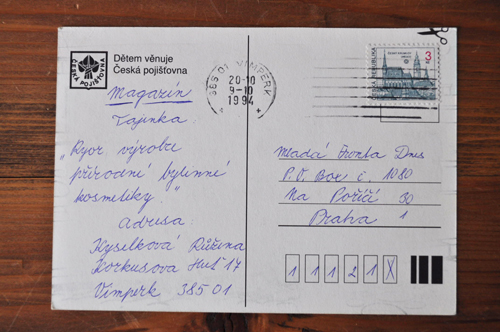 Dětem věnuje
Česká pojišťovna
ČESKÁ POJIŠŤOVNA
Magazín
Tajinka
„Ryor výroba
přírodní bylinné
kosmetiky."
Adresa
Kyselková Růžena
Korkusova Huť 17
Vimperk 385 01
385 01 VIMPERK
20-10
9-10
1994
3
ČESKÁ REPUBLIKA
Mladá Fronta Dnes
P. O. Box č. 1080
Na Poříčí 30
Praha 1
1 1 1 2 1 X